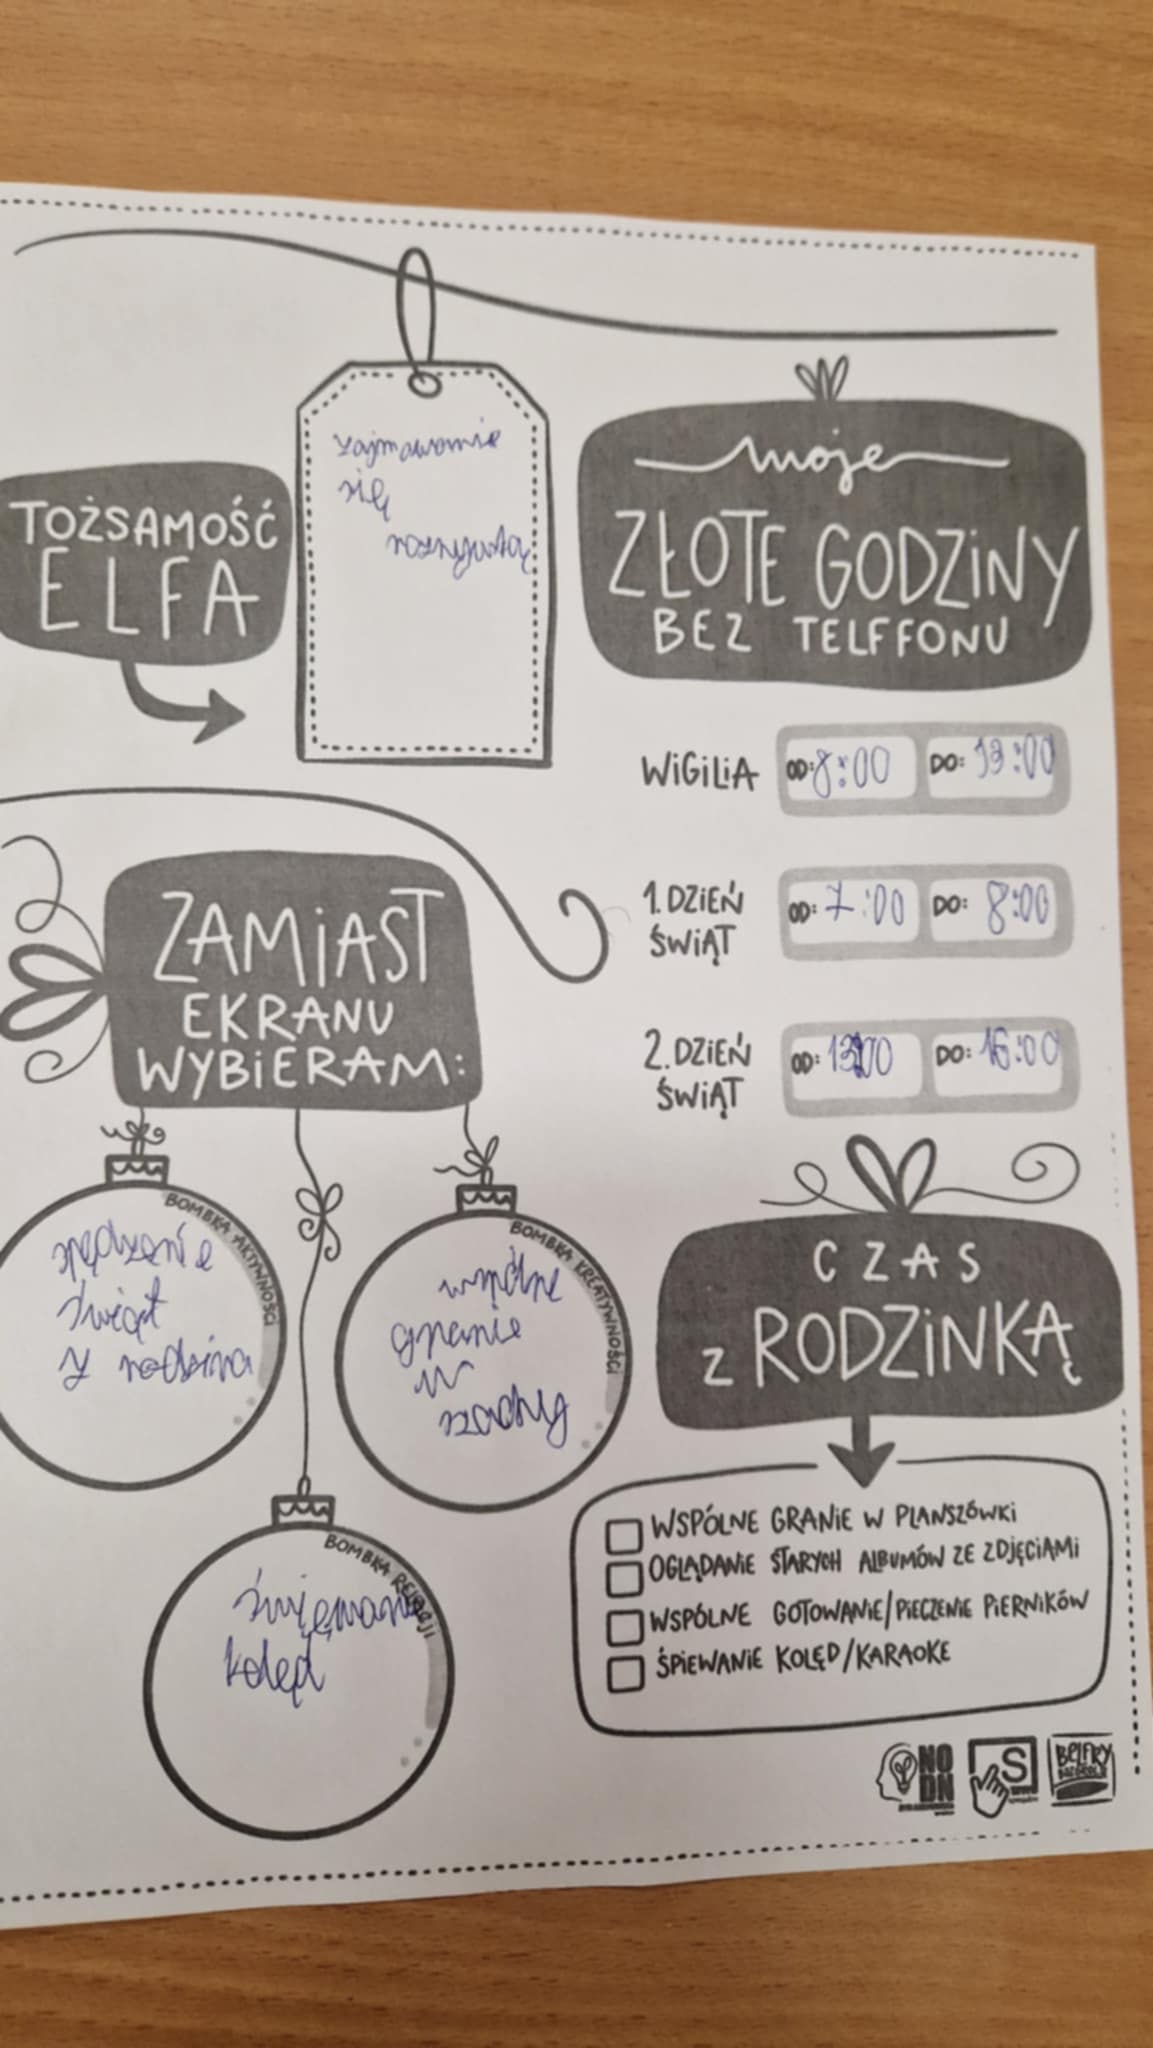 TOŻSAMOŚĆ
ELFA
zajmowanie
się
rozrywką
moje
ZŁOTE GODZINY
BEZ TELFFONU
WIGILIA OD: 8:00 DO: 13:00
1. DZIEŃ
ŚWIĄT OD: 7:00 DO: 8:00
2. DZIEŃ
ŚWIĄT OD: 13:00 DO: 16:00
ZAMIAST
EKRANU
WYBIERAM:
BOMBKA AKTYWNOŚCI
spędzenie
świąt
z rodzina
BOMBKA KREATYWNOŚCI
wspólne
granie
w
szachy
BOMBKA RELACJI
kolęd
CZAS
z RODZINKĄ
WSPÓLNE GRANIE W PLANSZÓWKI
OGLĄDANIE STARYCH ALBUMÓW ZE ZDJĘCIAMI
WSPÓLNE GOTOWANIE/PIECZENIE PIERNIKÓW
ŚPIEWANIE KOLĘD/KARAOKE
NO
DN
S
BELFRY